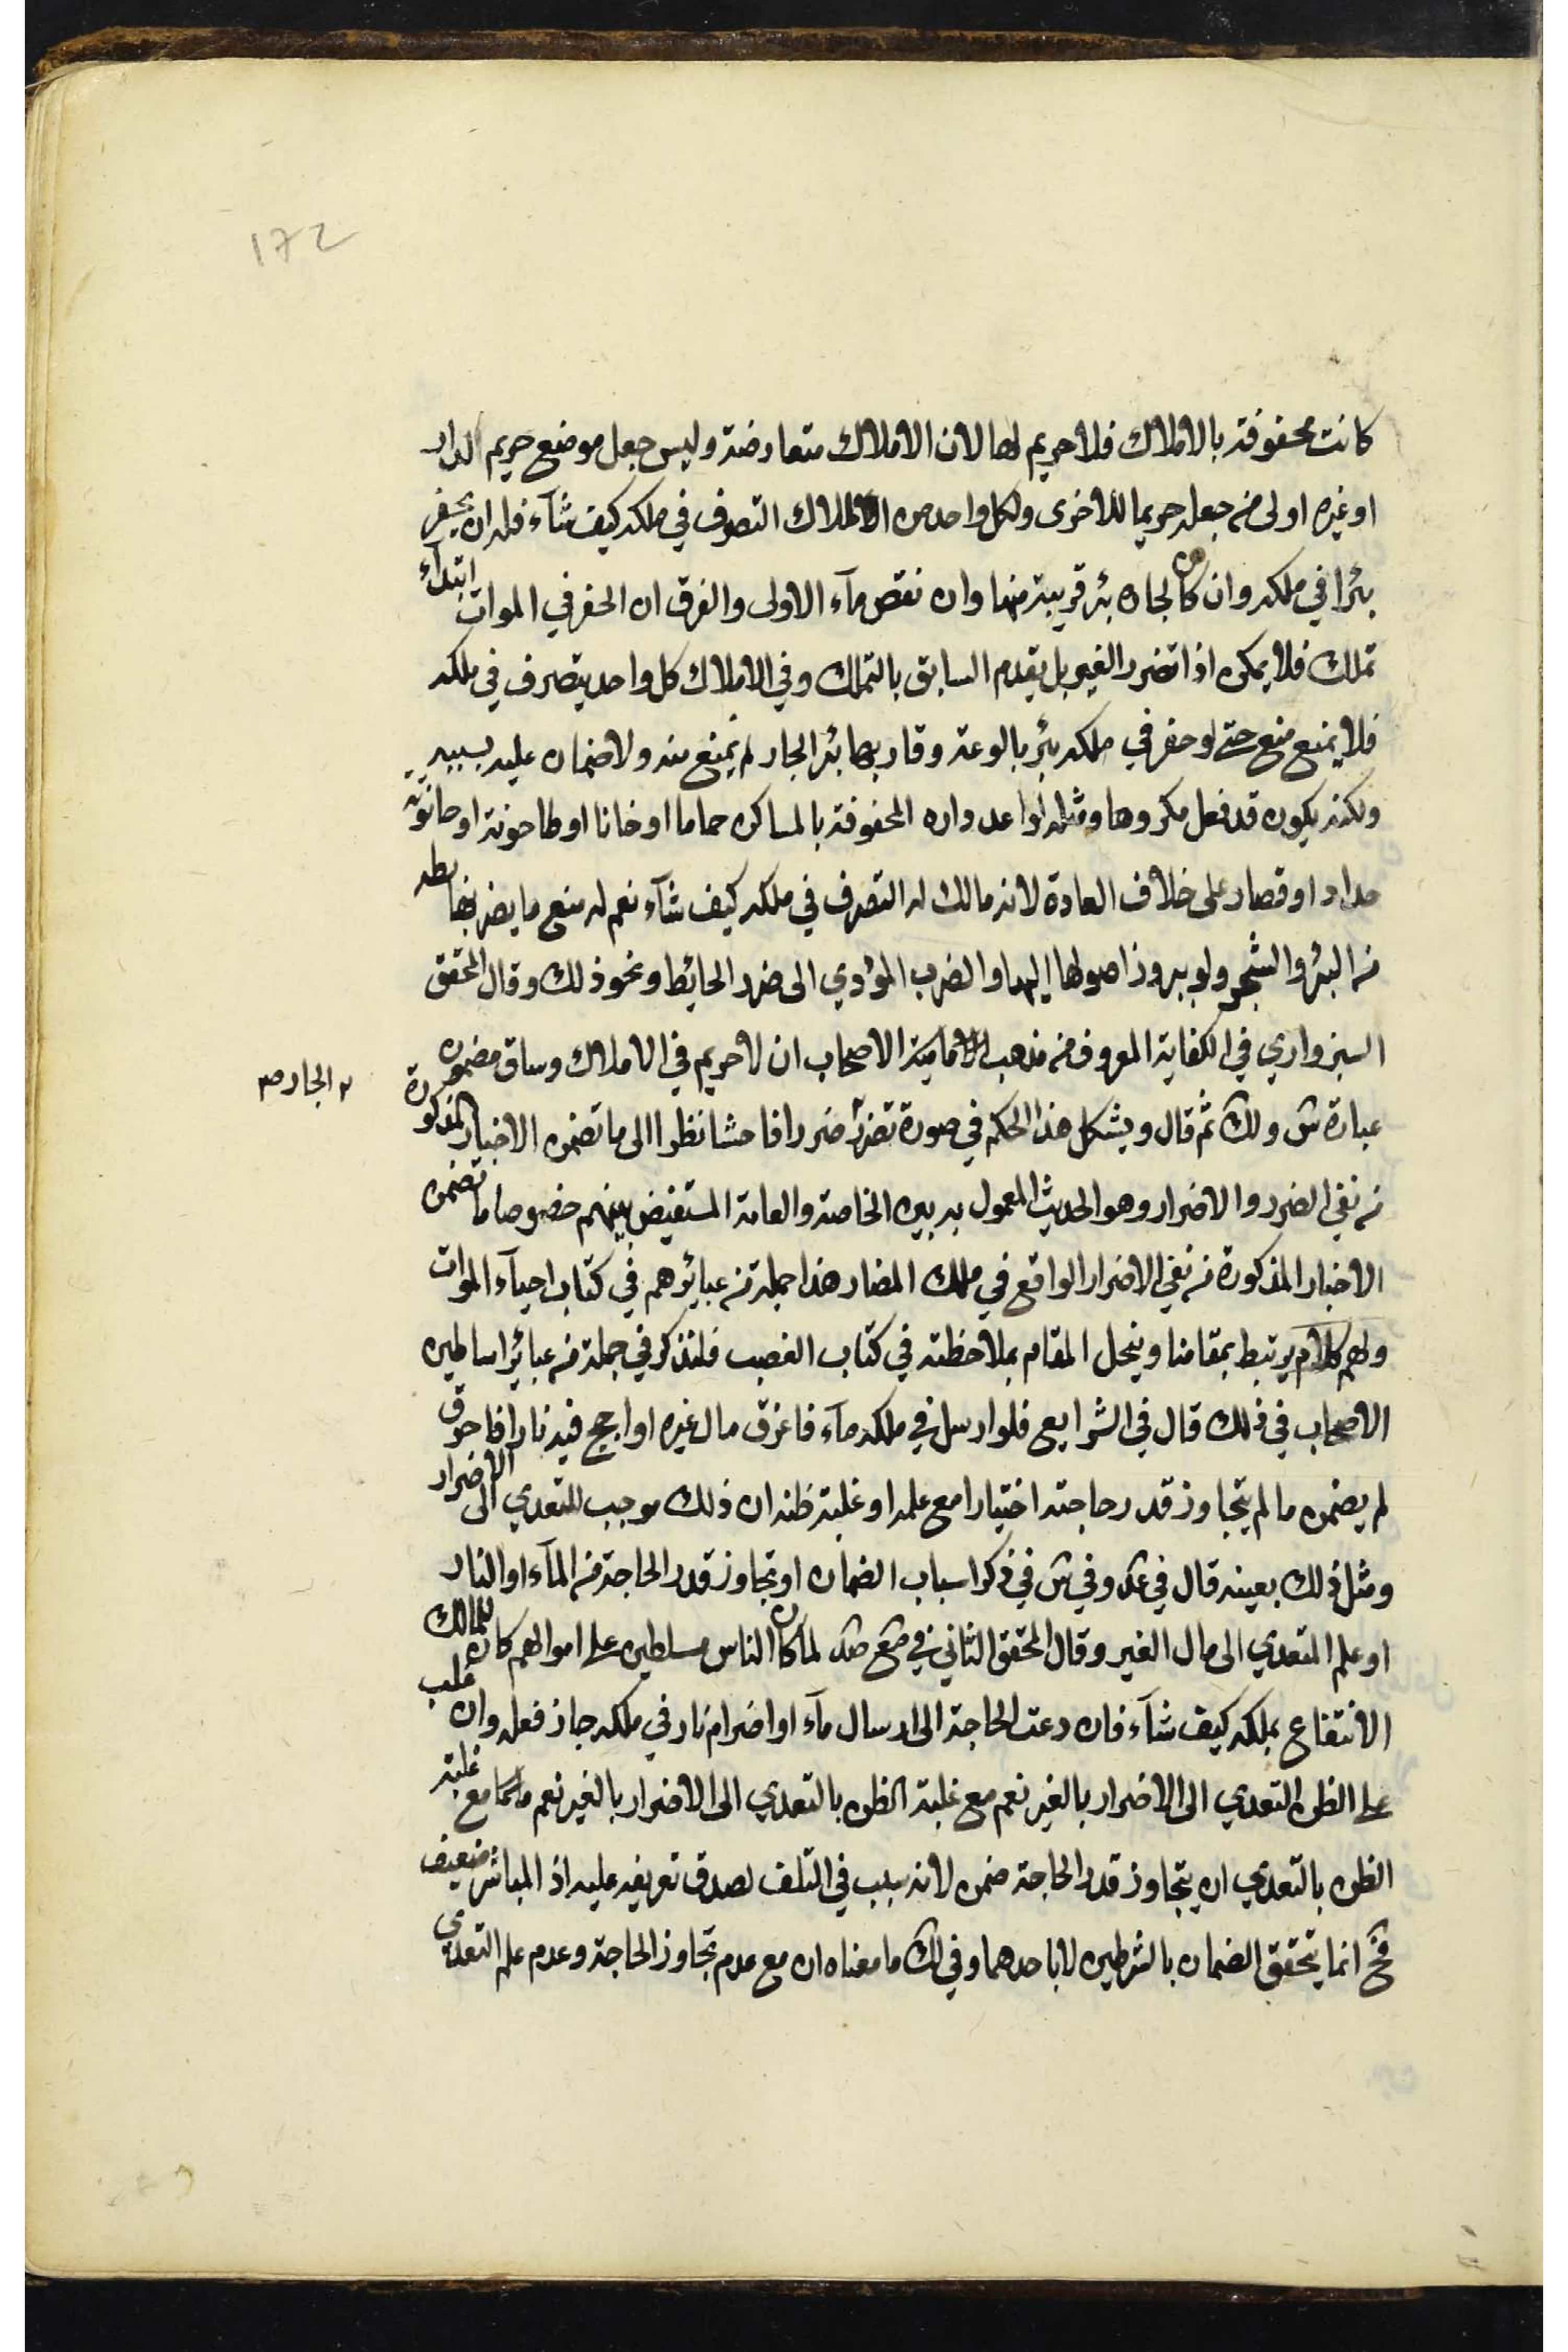 172
كانت محفوفة بالاملاك فلا حريم لها لان الاملاك متعارضة وليس جعل موضع حريم الدار
او غيره اولى من جعله حريما للاخرى ولكل واحد من الملاك التصرف في ملكه كيف شآء فله ان يحفر
بئرا في ملكه وان كان لجاره بئر قريبة منها وان نقص مآء الاولى والفرق ان الحفر في الموات ابتدآء
تملك فلا يمكن اذا تضرر الغير بل يقدم السابق بالتملك وفي الاملاك كل واحد يتصرف في ملكه
فلا يمنع منع حتى لو حفر في ملكه بئر بالوعة وقاربها بئر الجار لم يمنع منه ولا ضمان عليه بسببه
ولكنه يكون قد فعل مكروها ومثله لو اعد داره المحفوفة بالمساكن حماما او خانا او طاحونة او حانوت
حداد او قصار على خلاف العادة لانه مالك له التصرف في ملكه كيف شآء نعم له منع ما يضر بحائطه
من البئر والشجر ولو ببروز اصولها اليها والضرب المؤدي الى ضرر الحائط ونحو ذلك وقال المحقق
السبزواري في الكفاية المعروف من مذهب الاصحاب ان لا حريم في الاملاك وساق مضمون
عبارة ش ولك ثم قال ويشكل هذا الحكم في صورة تضرر ضررا فاحشا نظرا الى ما تضمن الاخبار المذكورة
الجار صح
من نفي الضرر والاضرار وهو الحديث المعمول به بين الخاصة والعامة المستفيض بينهم خصوصا ما تضمن
الاخبار المذكورة من نفي الاضرار الواقع في ملك المضار هذا جملة من عبائرهم في كتاب احيآء الموات
ولهم كلام يرتبط بمقامنا وينحل المقام بملاحظته في كتاب الغصب فلنذكر في جملة من عبائر اساطين
الاصحاب في ذلك قال في الشرايع فلو ارسل في ملكه مآء فاغرق مال غيره او اجج فيه نارا فاحرق
لم يضمن ما لم يتجاوز قدر حاجته اختيارا مع علمه او غلبة ظنه ان ذلك موجب للتعدي الى الاضرار
ومثل ذلك بعينه قال في عد وفي ش في ذكر اسباب الضمان او تجاوز قدر الحاجة من المآء او النار
او علم التعدي الى مال الغير وقال المحقق الثاني في مع صد لما كان الناس مسلطين على اموالهم كان للمالك
الانتفاع بملكه كيف شآء فان دعت الحاجة الى ارسال مآء او اضرام نار في ملكه جاز فعله وان غلب
على الظن التعدي الى الاضرار بالغير نعم مع غلبة الظن بالتعدي الى الاضرار بالغير نعم مع غلبة
الظن بالتعدي ان يتجاوز قدر الحاجة ضمن لانه سبب في التلف لصدق تعريفه عليه اذ المباشر ضعيف
فح انما يتحقق الضمان بالشرطين لا باحدهما وفي لك ما معناه ان مع عدم تجاوز الحاجة وعدم علم التعدي